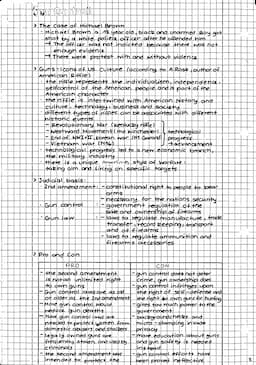 Gun Control
? The Case of Michael Brown
- Michael Brown is 18 year old, black and unarmed Boy got
shot by a white police officer after he offended him
→ The officer was not indicted because there was not
enough evidence
→ There were protest with and without violence
? Guns: Icons of US Culture (according to A. Rose, author of
American Rifle)
- the rifle represents the individualism, independence,
self control of the American people and is part of the
American character
- the rifle is intertwined with American history and
culture, technology, business and society
different types of rifles can be associated with different
historic events:
- Revolutionary War (Kentucky rifle)
- Westward Movement (the Winchester)
- End of WW I + II, Korean War (M1 Garand)
- Vietnam War (M16)
technological
progress
+ advancement
technological progress led to a new economic branch,
the military industry
there is a unique American style of warfare:
taking aim and firing on specific targets
? Judicial basis
2nd amendement:
- constitutional right to people to bear
arms
- necessary for the nations security
Gun control
- government regulation of the
sale and ownership of firearms
Gun law
- laws to regulate manufacture, trade
transfer, record keeping, transport
and of firearms
- laws to regulate ammunition and
firearms accessories
? Pro and Con
PRO
CON
- the second amendement
is not an unlimited right
to own guns
- gun control does not deter
crime, gun ownership does
- Gun control laws are as old
or older as the 2nd amendment
- gun control infringes upon
the right of self-defense and
the right to own guns for hunting
- more gun control would
reduce gun deaths
- gives too much power to the
government
- More gun control laws are
needed to protect women from
domestic abusers and stalkers
- background checks and
micro-stamping invade
privacy
- legally owned guns are
frequently stolen and used by
criminals
- more education about guns
and gun safety is needed
instead
- the second amendement was
intended to protect the
- gun control efforts have
been proved ineffective